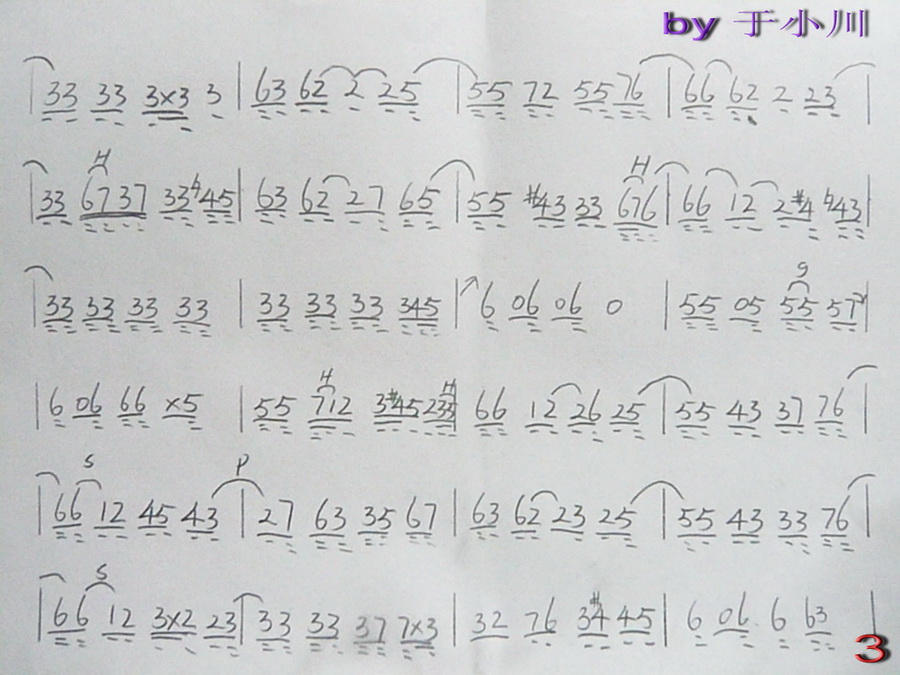 by 于小川
33 33 3×3 3 | 63 62 2 25 | 55 72 55 76 | 66 62 2 23 |
H H
| 33 67 37 33 ♮45 | 63 62 27 65 | 55 #43 33 676 | 66 12 2#4 ♮43 |
g
| 33 33 33 33 | 33 33 33 345 | ↗6 06 06 0 | 55 05 55 57 |
H H
| 6 06 66 ×5 | 55 712 3#45 235 | 66 12 26 25 | 55 43 37 76 |
S P
| 66 12 45 43 | 27 63 35 67 | 63 62 23 25 | 55 43 33 76 |
S
| 66 12 3×2 23 | 33 33 37 7×3 | 32 76 3#4 45 | 6 06 6 63 |
3